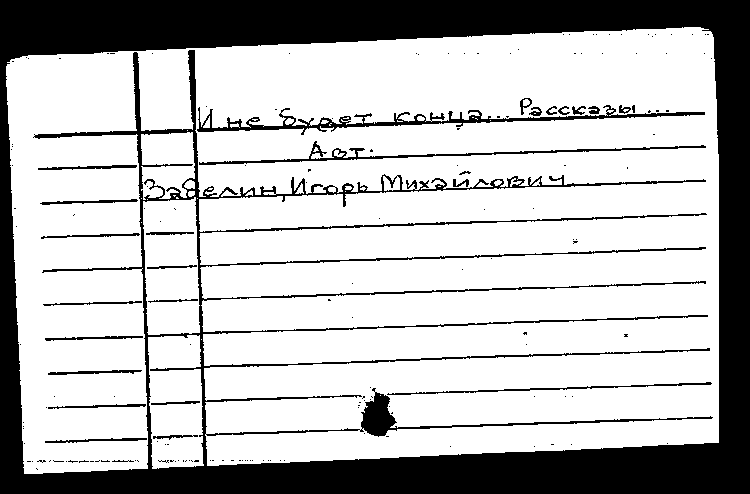 И не будет конца... Рассказы...
Авт.
Забелин, Игорь Михайлович